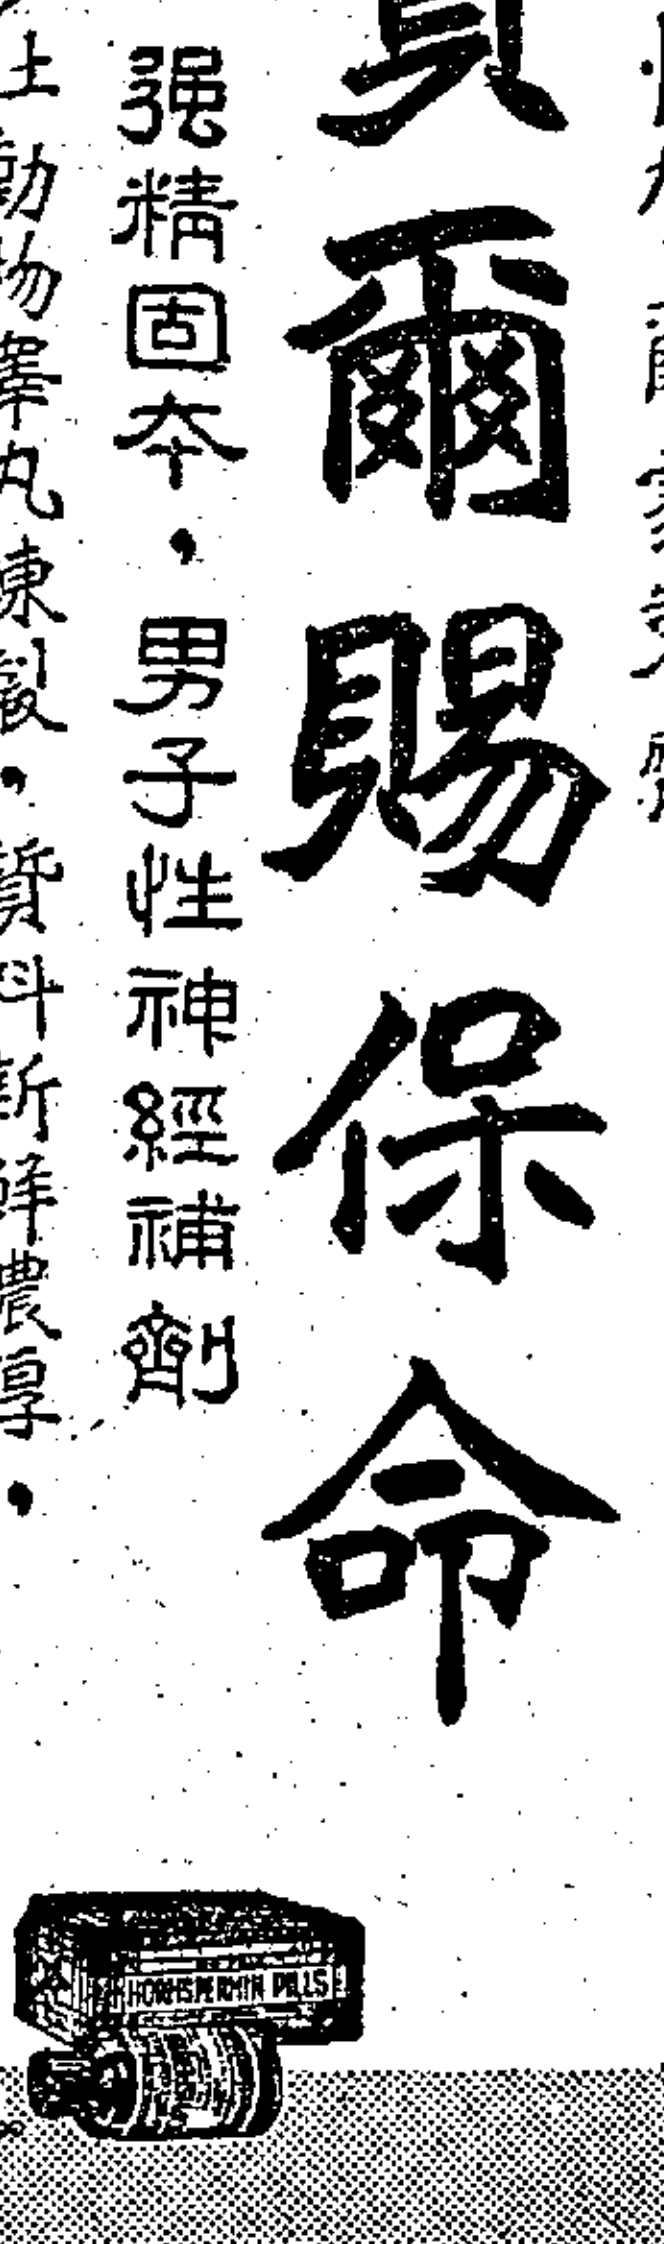 爾賜保命
强精固本，男子性神經補劑
動物睪丸煉製，料新鮮濃厚，
HORMSPERMIN PILLS